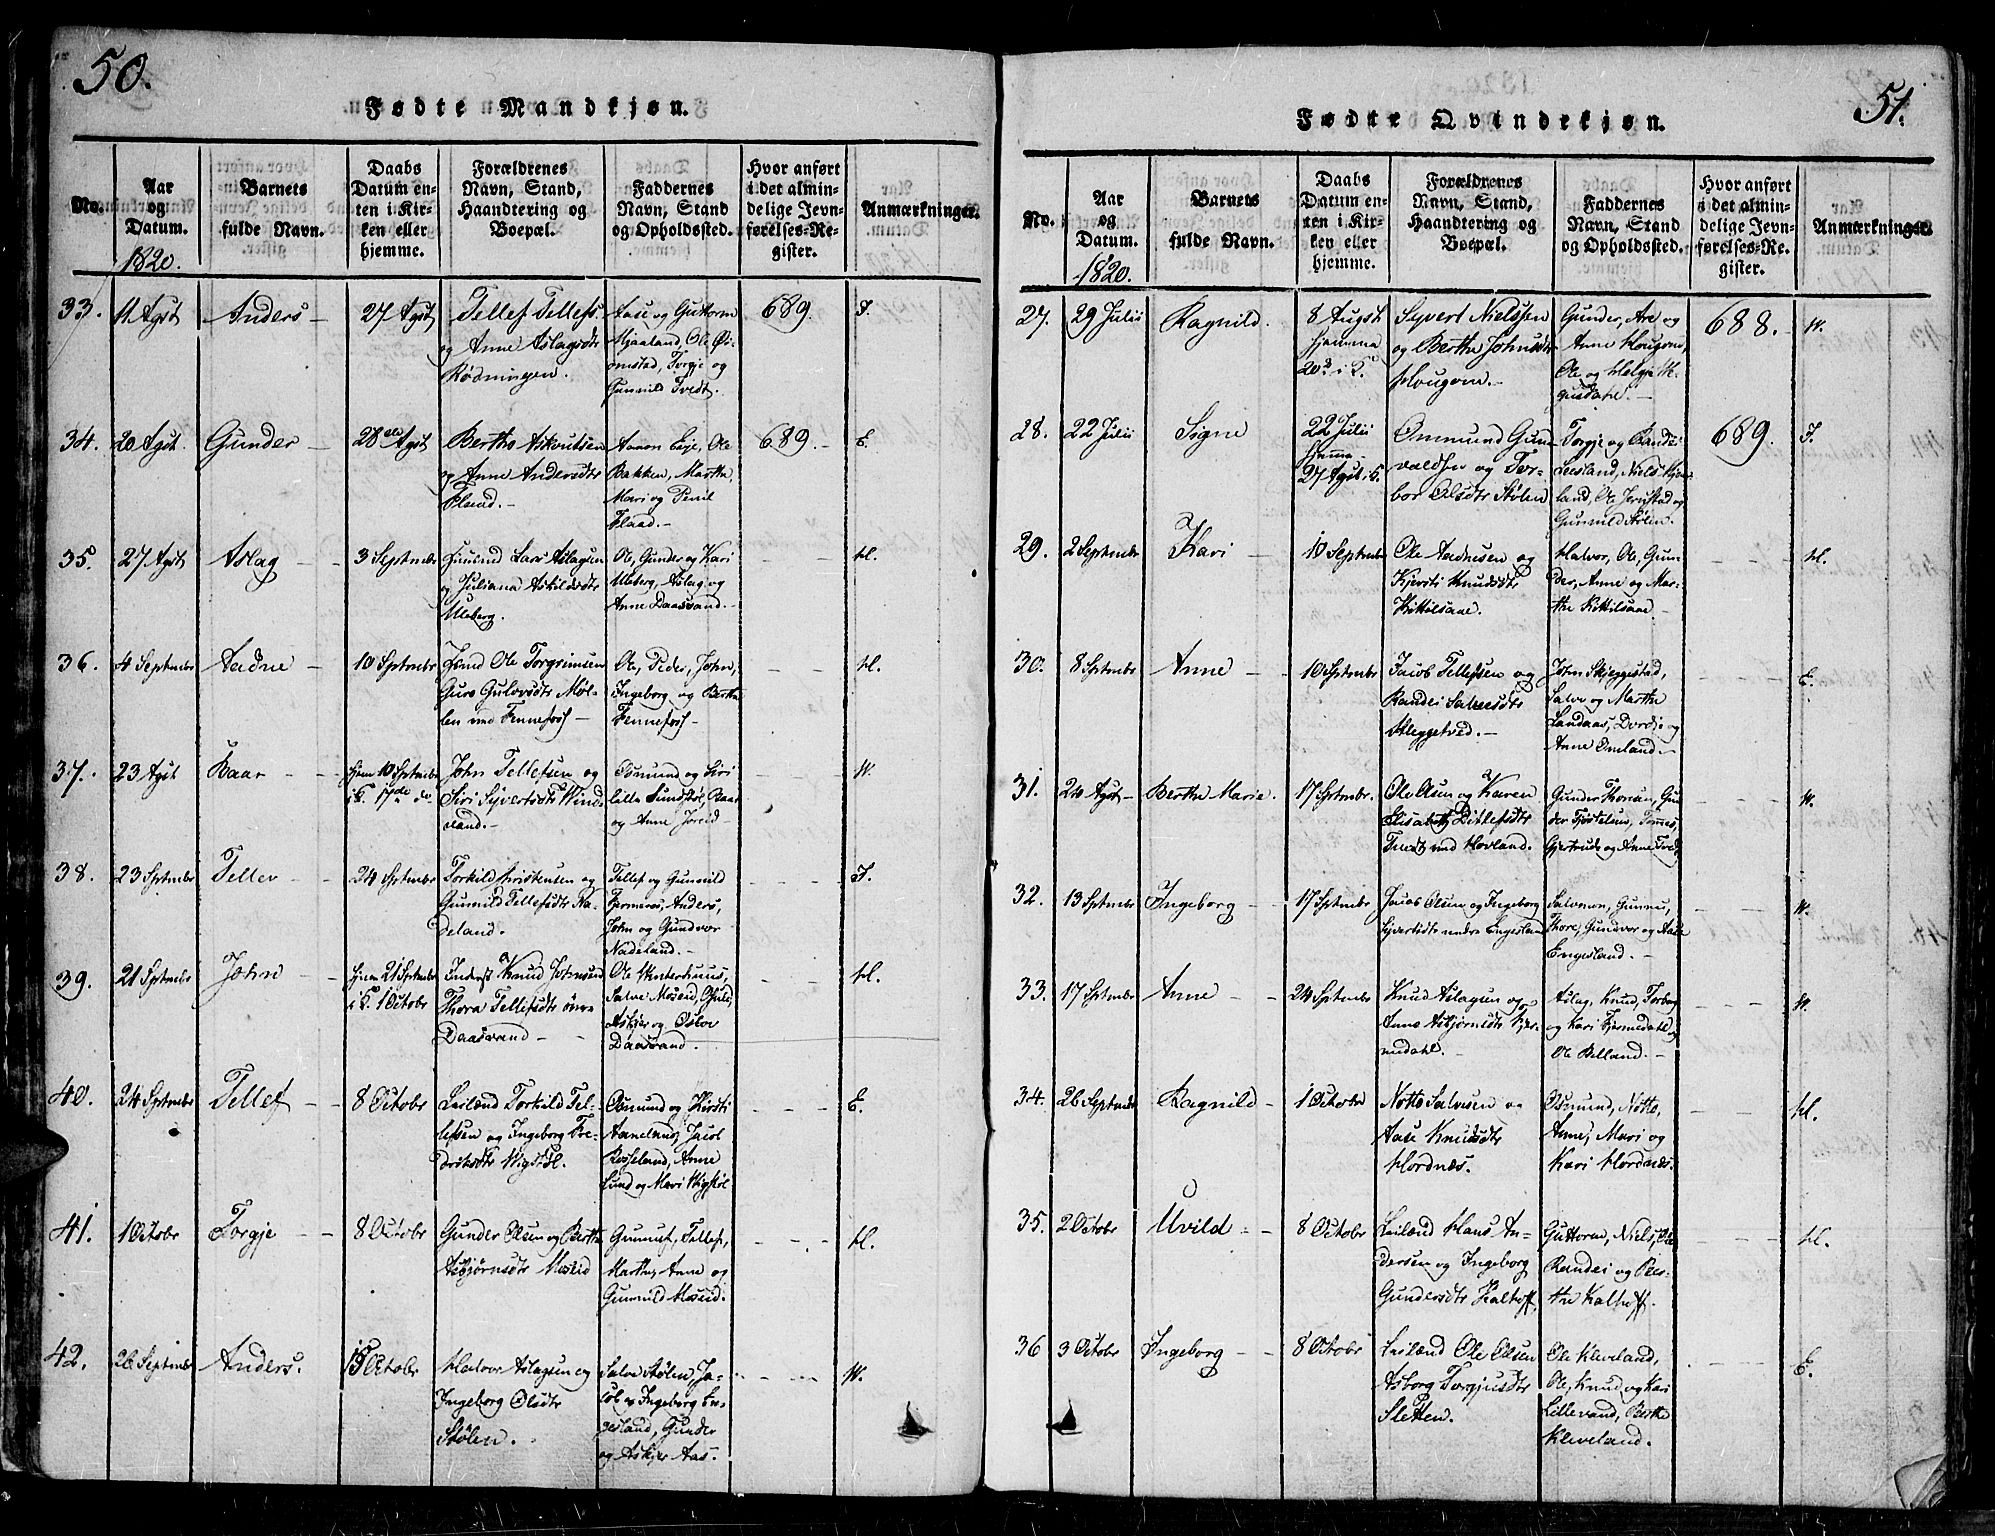 50.
Fødte Mandkjøn.
No.
Aar
og
Datum.
1820.
Barnets
fulde Navn.
Daabs
Datum en-
ten i Kir-
ken eller
hjemme.
Forældrenes
Navn, Stand,
Haandtering og
Boepæl.
Faddernes
Navn, Stand
og Opholdssted.
Hvor anført
i det almin-
delige Jevn-
førelses-Re-
gister.
Anmærkninger.
33.
11 Agst
Anders
27 Agst
Tellef Tellefs.
og Anne Aslagsdtr
Rødningen.
Aase og Guttorm
Mjaaland, Ole
omstad, Torgje og
Gunnild Tvedt.
689.
J.
34.
20 Agst
Gunder
28de Agst
og Anne Andersdtr
Flaad.
Bakken, Marthe,
Mari og
Flaad.
689.
E.
35.
27 Agst
Aslag
3 Septembr
Lars Aslagsen
og Juliana Askildsdtr
Uleberg.
Ole, Gunder og Kari
Uleberg, Aslag og
Anne Daasvand.
H.
36.
4 Septembr
Aadne
10 Septembr
Ole Torgrimsen
Guro Gulovsdtr Møl-
len ved Fennefoss
Ole, Peder, John,
Ingeborg og Berthe
Fennefoss
H.
37.
23 Agst
Baar
hjem 10 Septembr
i K. 17de do
John Tellefsen og
Siri Syvertsdtr Vinds-
vand.
Osmund og Siri
og Anne
W.
38.
23 Septembr
Tellev
24 Septembr
Torkild Christensen og
Gunnild Tellefsdtr Na-
deland.
Tellef og Gunnild
Anders,
John og Gundvor
Nadeland.
J.
39.
21 Septembr
John
hjem 21 Septembr
i K. 1 Octobr
Inderst Knud Johnsen
Thora Tellefsdtr øvre
Daasvand
Ole
Salve Moseid,
Askjer og
Daasvand.
H.
40.
24 Septembr
Tellef
8 Octobr
Leilænd Torkild Tel-
lefsen og Ingeborg Fre-
driksdtr Vigstøl.
Osmund og Kirsti
Jacob
Røsseland, Anne
Lund og Mari Vigstøl
E.
41.
1 Octobr
Torgje
8 Octobr
Gunder Olsen og Berthe
Asbjørnsdtr Moseid
Gunuf, Tellef,
Marthe, Anne og
Gunnild Moseid.
H.
42.
26 Septembr
Anders.
15 Octobr
Halvor Aslagsen og
Ingeborg Olsdtr
Stølen.
Salve Stølen, Ja-
cob og Ingeborg En-
gesland, Gunder
og Askjer Aas.
W.
51.
Fødte Qvindekjøn.
No.
Aar
og
Datum.
1820.
Barnets
fulde Navn.
Daabs
Datum en-
ten i Kir-
ken eller
hjemme.
Forældrenes
Navn, Stand,
Haandtering og
Boepæl.
Faddernes
Navn, Stand
og Opholdssted.
Hvor anført
i det almin-
delige Jevn-
førelses-Re-
gister.
Anmærkninger.
27.
29 Julii
Ragnild.
8 Augst
hjemme
20de i K.
Syvert Nielssen
og Berthe Johnsdtr
Hougom.
Gunder, Are og
Anne Hougom,
Ole og Helge
688.
W.
28.
22 Julii
Signe
22 Julii
hjemme
27 Agst i K.
Ommund Gun-
valdsen og Tor-
bor Olsdtr Stølen
Torgje og Randei
land, Ole
Gunnild Stølen.
689.
J.
29.
2 Septembr
Kari
10 Septembr
Ole Aadnesen og
Kjersti Knudsdtr
Kittilsaae.
Halvor, Ole, Gun-
der, Anne og Mar-
the Kittilsaae
H.
30.
8 Septembr
Anne
10 Septembr
Jacob Tellefsen og
Randei Salvesdtr
Heggetved.
John Skjeggestad,
Salve og Marthe
Landaas, Dordi og
Anne Omland.
E.
31.
24 Agst
Berthe Marie.
17 Septembr.
Ole Olsen og Karen
Elisabeth Ditlefsdtr
Tvedt ved Hovland.
Gunder Thorsen, Gun-
der Tjøstelsen, Tomes,
Gjertrud og Anne Tvedt
W.
32.
13 Septembr
Ingeborg
17 Septembr
Jacob Olsen og Ingeborg
Syvertsdtr nedre Engesland
Salomon, Gunne,
Thore, Gundvor og Aase
Engesland.
W.
33.
17 Septembr
Anne
24 Septembr
Knud Aslagsen og
Anne Asbjørnsdtr Kjer-
medahl.
Aslag, Knud, Torborg
og Kari Kjermedahl og
Ole Belland.
W.
34.
26 Septembr
Ragnild
1 Octobr
Notto Salvesen og
Aase Knudsdtr
Hordnæs.
Osmund, Notto,
Anne, Mari og
Kari Hordnæs.
H.
35.
2 Octobr
Uvild
8 Octobr
Leilænd Hans An-
dersen og Ingeborg
Gundersdtr Kalhoff.
Guttorm, Niels, Ole
Randei og Ber-
the Kalhoff.
H.
36
3 Octobr
Ingeborg
8 Octobr
Leilænd Ole Olsen
Asborg Torgjusdtr
Sletten.
Ole Kleveland,
Ole, Knud og Kari
Lillevand, Berthe
Kleveland.
E.